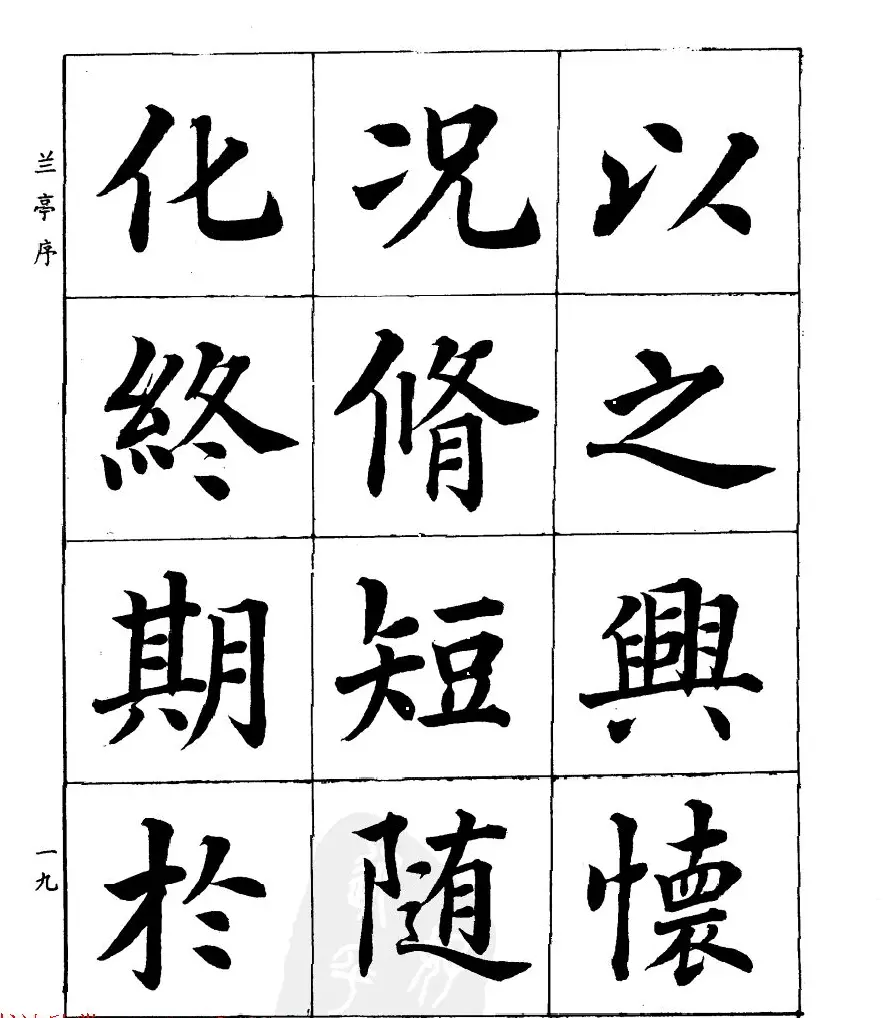 以之興懷
况脩短随
化終期於
兰亭序
一九